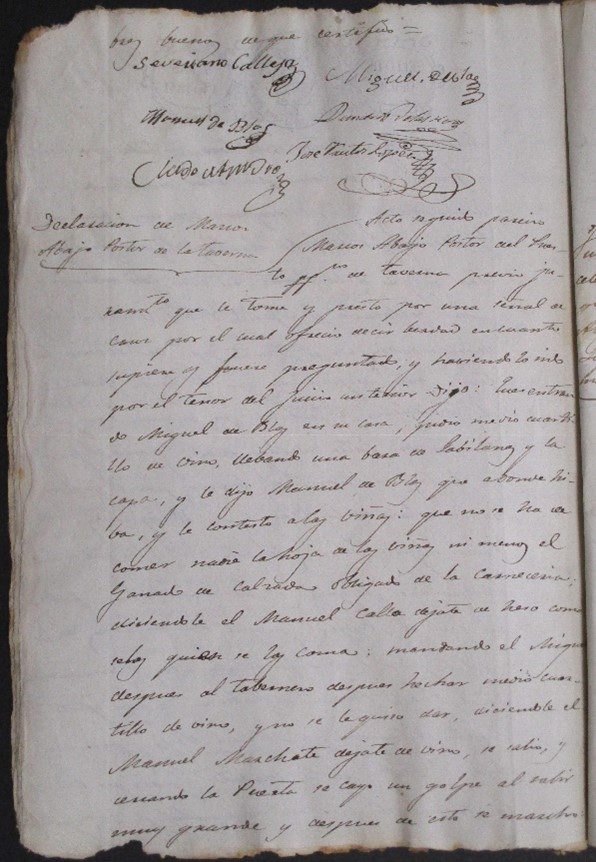 brez buenos de que certifico =
Severiano Calleja
Miguel de Blas
Manuel de Blas
Jose
Declaracion de Marcos
Abajo Postor de la taverna
Acto seguido parecio
Marcos Abajo Postor del Pues-
to pp.co de taverna previo ju-
ramto que le tome y presto por una señal de
cruz por el cual ofrecio decir berdad en cuanto
supiere y fuere preguntado, y haviendolo sido
por el tenor del juicio anterior Dijo: Que entran-
do Miguel de Blas en su casa, pidio medio cuarti-
llo de vino, llebando una bara de y la
capa, y le dijo Manuel de Blas que a donde hi-
ba, y le contesto a las viñas: que no se ha de
comer nadia la hoja de las viñas ni menos el
Ganado de Calzada obligado de la Carneceria;
diciendole el Manuel Calla dejate de heso como
selas quien se las coma: mandando el Miguel
despues al tabernero despues hechar medio cuar-
tillo de vino, y no se le quiso dar, diciendole el
Manuel Marchate dejate de vino, se salio, y
cerrando la Puerta se cayo un golpe al salir
muy grande y despues de esto se marcho